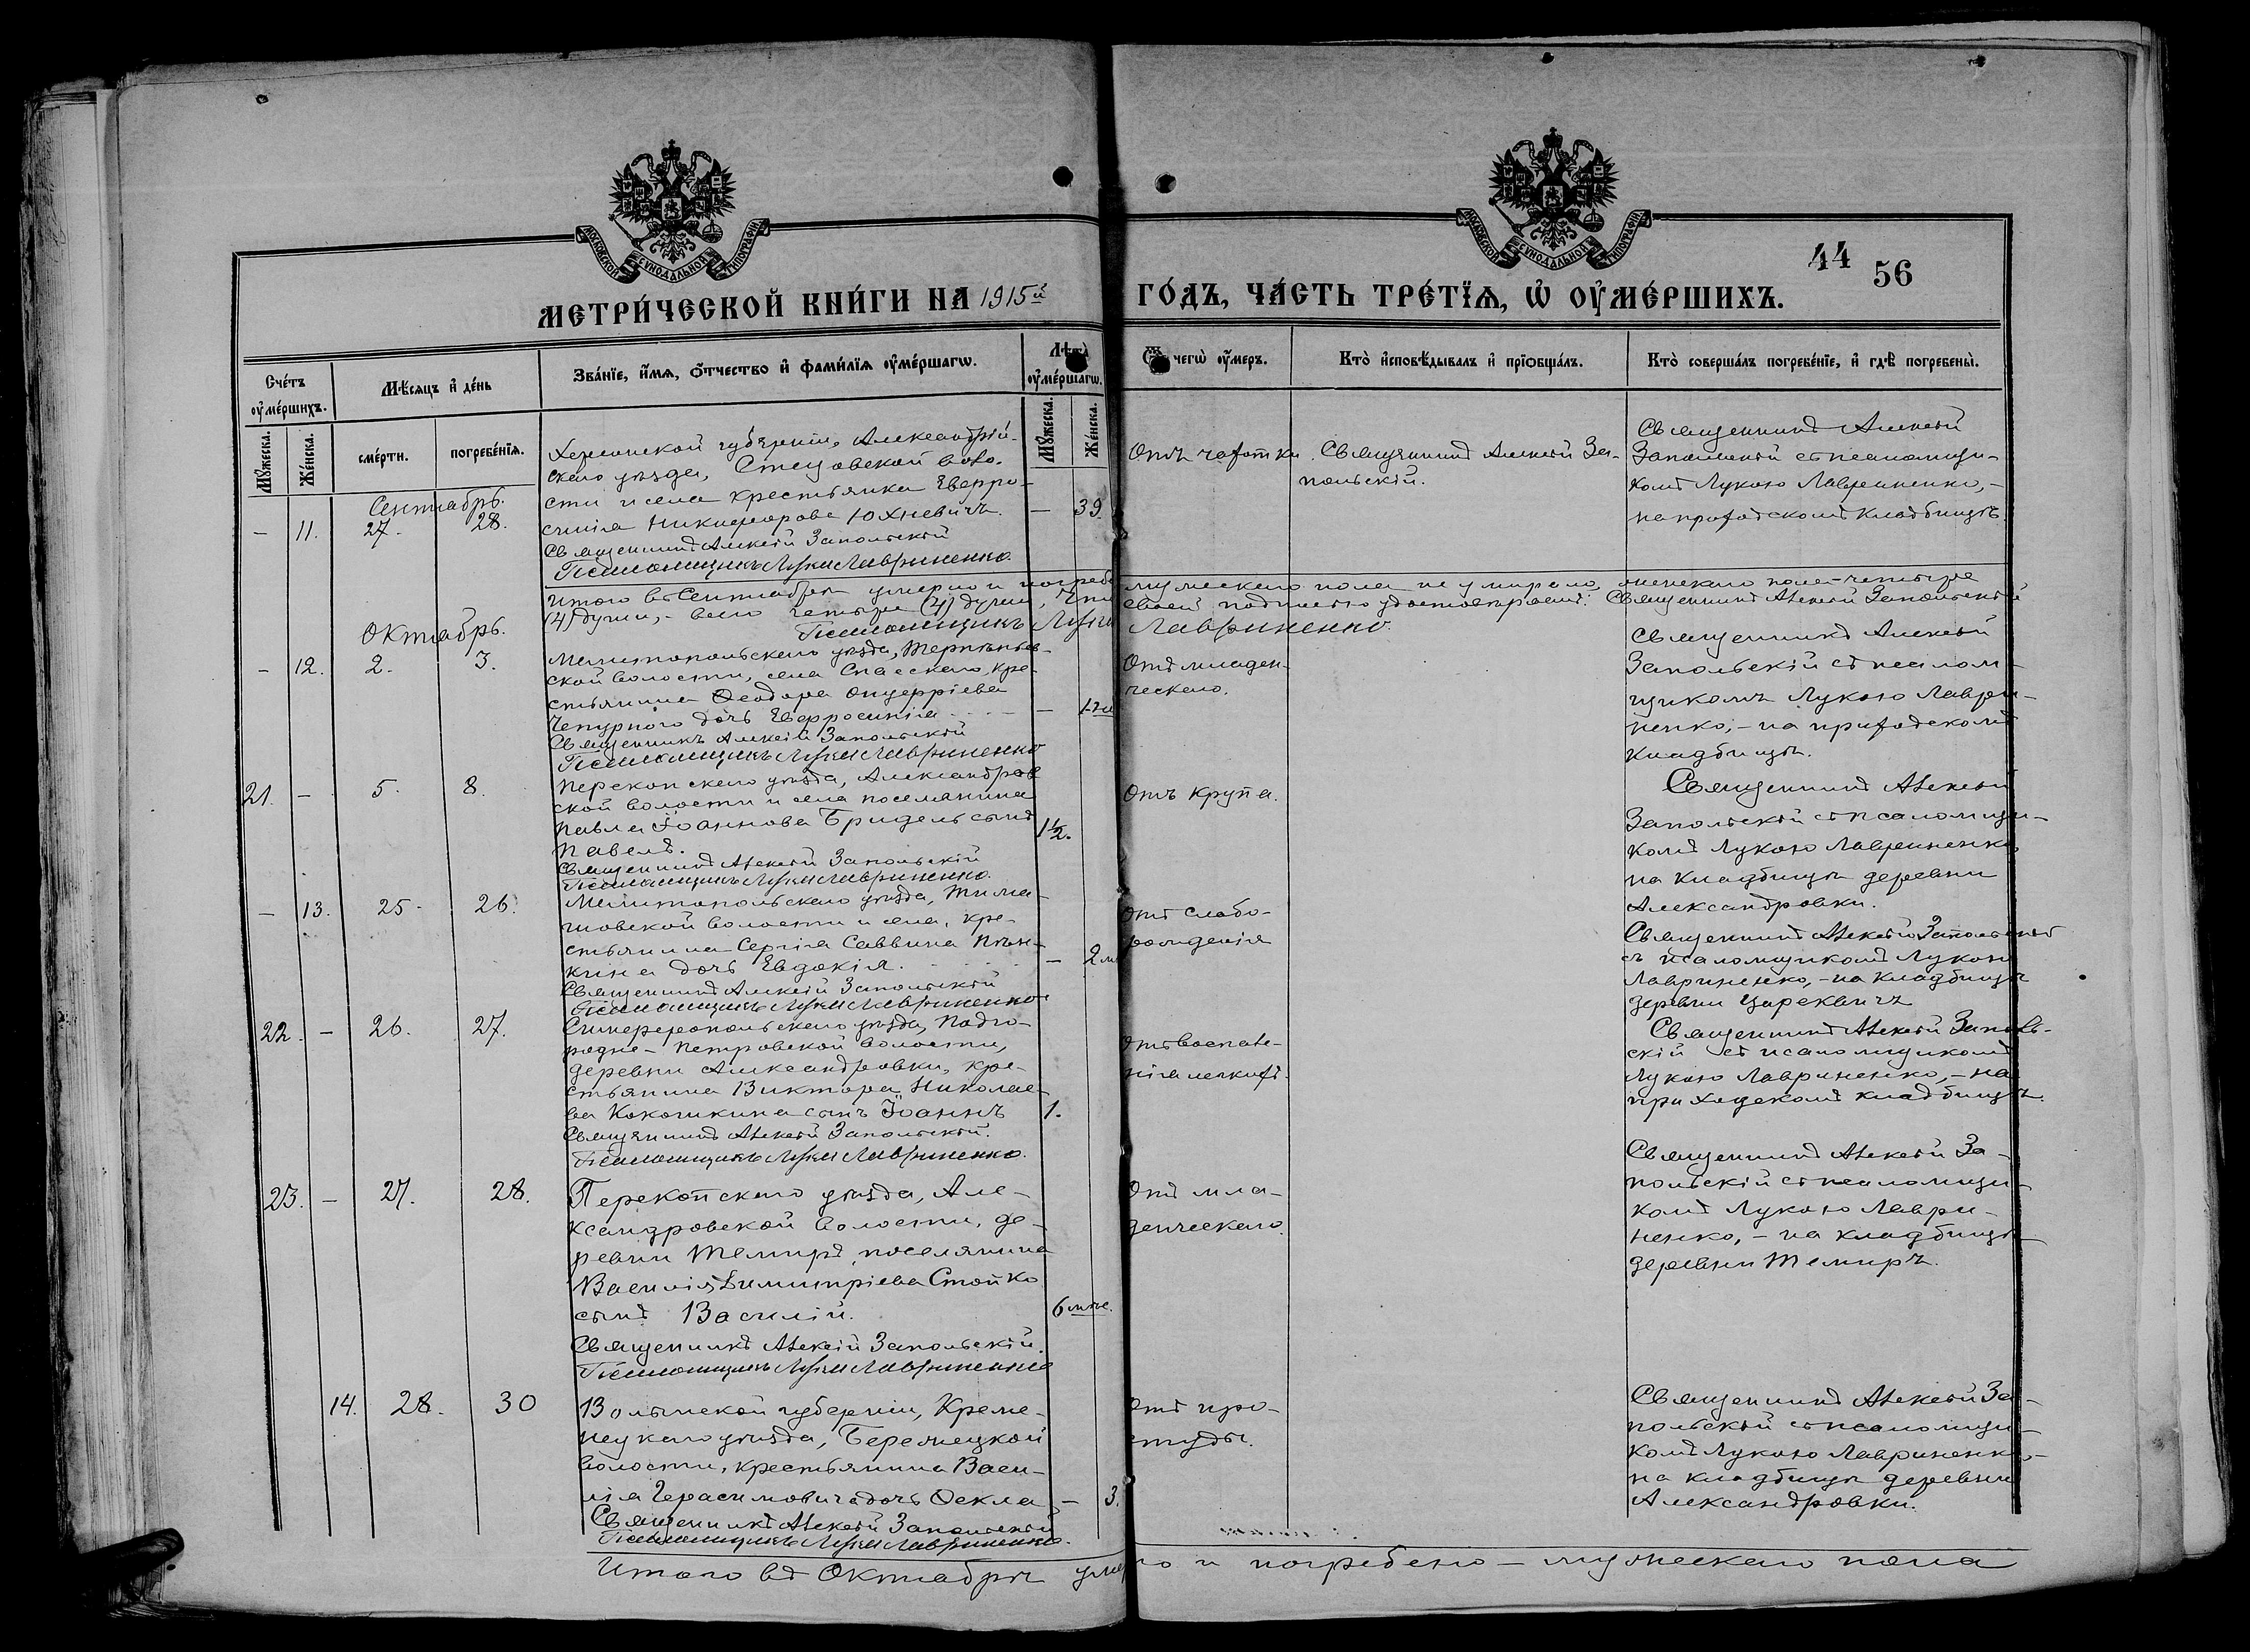 МОСКОВСКОЙ СУНОДАЛЬНОЙ ТИПОГРАФІИ
МОСКОВСКОЙ СУНОДАЛЬНОЙ ТИПОГРАФІИ
44 56
МЕТРИ́ЧЕСКОЙ КНИ́ГИ НА 1915й ГО́ДЪ, ЧА́СТЬ ТРЕ́ТЇѦ, Ѡ҆ ОУ҆МЕ́РШИХЪ.
Сче́тъ оу҆ме́ршихъ.
Мѣ́сѧцъ и҆ де́нь
Зва́нїе, и҆́мѧ, ѻ҆́тчество и҆ фами́лїѧ оу҆ме́ршагѡ.
Лѣта̀ оу҆ме́ршагѡ.
Ѿ чегѡ̀ оу҆́меръ.
Кто̀ и҆сповѣ́дывалъ и҆ прїѻбща́лъ.
Кто̀ соверша́лъ погребе́нїе, и҆ гдѣ̀ погребены̀.
Мꙋ́жеска.
Же́нска.
сме́рти.
погребе́нїѧ.
Мꙋ́жеска.
Же́нска.
Сентябрь.
– 11. 27. 28.
Херсонской губерніи, Александрій-
скаго уѣзда, Стецовской воло-
сти и села крестьянка Евфро-
синія Никифорова Юхневичъ.
– 39.
Священникъ Алексій Запольскій
Псаломщикъ Лука Лавриненко.
Отъ чахотки.
Священникъ Алексій За-
польскій.
Священникъ Алексій
Запольскій съ псаломщи-
комъ Лукою Лавриненко,–
на приходскомъ кладбищѣ.
Итого въ Сентябрѣ умерло и погребе мужескаго пола не умирало, женскаго пола – четыре
(4) души, – всего четыре (4) души, что своей подписью удостовѣряемъ: Священникъ Алексій Запольскій
Псаломщикъ Лука Лавриненко.
Октябрь.
– 12. 2. 3.
Мелитопольскаго уѣзда, Терпѣньев-
ской волости, села Спасскаго, кре-
стьянина Ѳеодора Онуфріева
Чепурного дочь Евфросинія
–
Священникъ Алексій Запольскій
Псаломщикъ Лука Лавриненко
Отъ младен-
ческаго.
Священникъ Алексій
Запольскій съ псалом-
щикомъ Лукою Лаври-
ненко,– на приходскомъ
кладбищѣ.
21. – 5. 8.
Перекопскаго уѣзда, Александров
ской волости и села поселянина
Павла Іоаннова Бридель сынъ
Павелъ.
1½.
Священникъ Алексій Запольскій
Псаломщикъ Лука Лавриненко.
Отъ крупа.
Священникъ Алексій
Запольскій съ псаломщи-
комъ Лукою Лавриненко,
на кладбищѣ деревни
Александровки.
– 13. 25 26.
Мелитопольскаго уѣзда, Тима-
шовской волости и села, кре-
стьянина Сергія Саввина Пѣн-
кина дочь Евдокія.
– 2м
Священникъ Алексій Запольскій
Псаломщикъ Лука Лавриненко
Отъ слабо-
рожденія
Священникъ Алексій Запольскій
съ псаломщикомъ Лукою
Лавриненко, – на кладбищѣ
деревни Цареквичъ
22. – 26. 27.
Симферопольскаго уѣзда, Подго-
родне-Петровской волости,
деревни Александровки, кре-
стьянина Виктора Николае-
ва Кокошкина сынъ Іоаннъ
1.
Священникъ Алексій Запольскій.
Псаломщикъ Лука Лавриненко.
Отъ воспале-
нія легкихъ.
Священникъ Алексій Заполь-
скій съ псаломщикомъ
Лукою Лавриненко, – на
приходскомъ кладбищѣ.
23. – 27. 28.
Перекопскаго уѣзда, Але-
ксандровской волости, де-
ревни Темиръ, поселянина
Василія Димитріева Стойко
сынъ Василій.
6 мѣс.
Священникъ Алексій Запольскій.
Псаломщикъ Лука Лавриненко
Отъ мла-
денческаго.
Священникъ Алексій За-
польскій съ псаломщи-
комъ Лукою Лаври-
ненко, – на кладбищѣ
деревни Темиръ.
14. 28. 30
Волынской губерніи, Креме-
нецкаго уѣзда, Бережецкой
волости, крестьянина Васи-
лія Герасимовича дочь Ѳекла
– 3.
Священникъ Алексій Запольскій
Псаломщикъ Лука Лавриненко.
Отъ про-
студы.
Священникъ Алексій За-
польскій съ псаломщи-
комъ Лукою Лавриненко,–
на кладбищѣ деревни
Александровки.
Итого въ Октябрѣ умерло и погребено – мужескаго пола